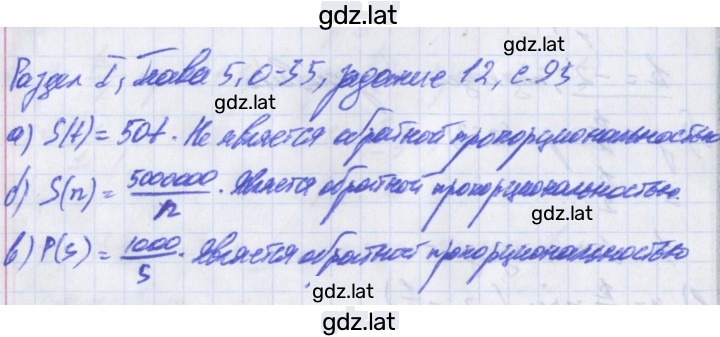 gdz.lat
Раздел I, Глава 5, О-35, задание 12, с.93
gdz.lat
а) S(t) = 50t. Не является обратной пропорциональностью
б) S(n) = 5000000/n. Является обратной пропорциональностью.
gdz.lat
в) P(s) = 1000/s. Является обратной пропорциональностью
gdz.lat
gdz.lat